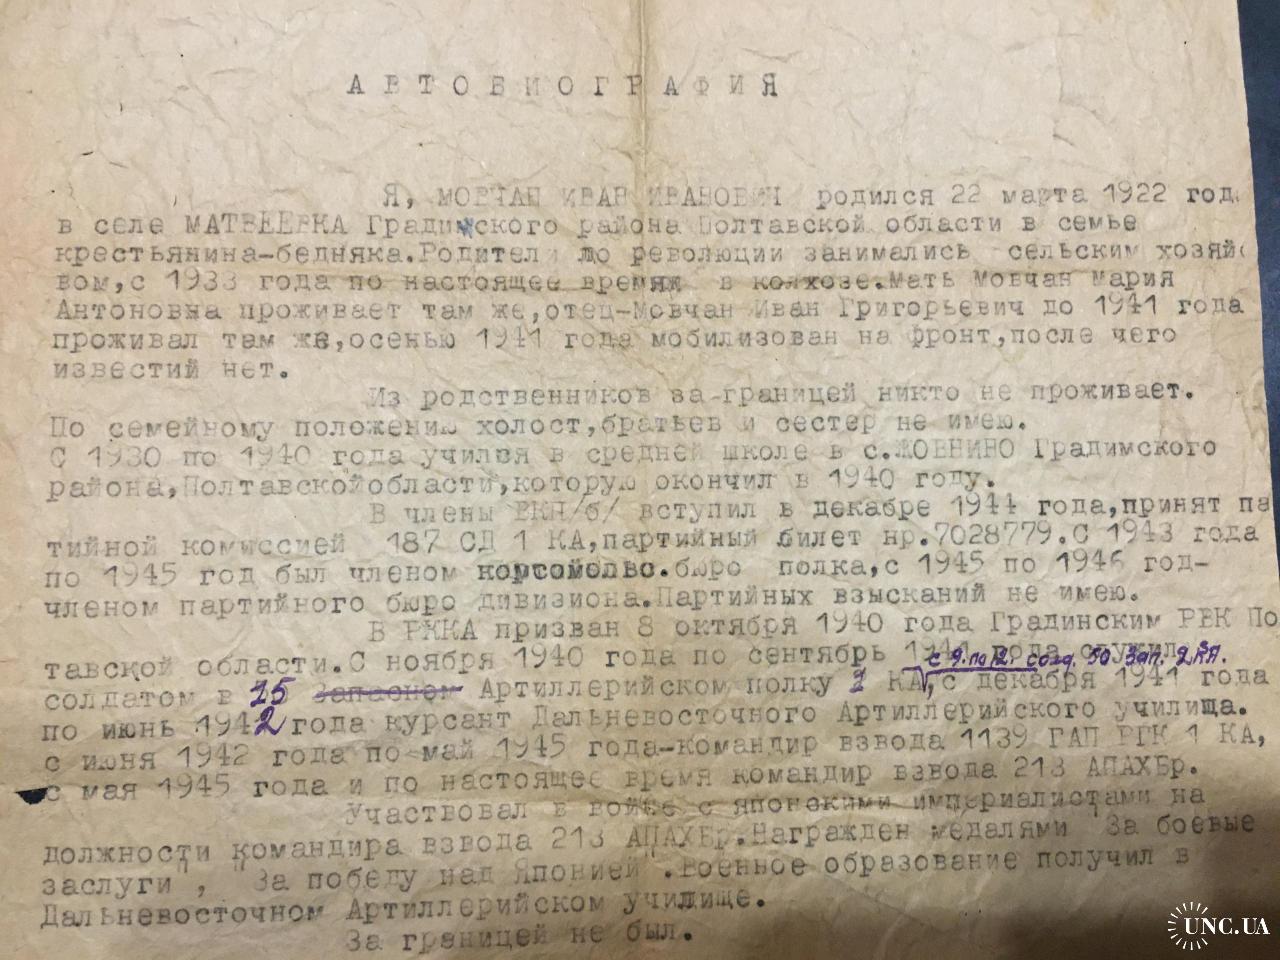 АВТОБИОГРАФИЯ
Я, МОВЧАН ИВАН ИВАНОВИЧ родился 22 марта 1922 год
в селе МАТВЕЕВКА Градижского района Полтавской области в семье
крестьянина-бедняка.Родители до революции занимались сельским хозяйс
вом,с 1933 года по настоящее время в колхозе.мать Мовчан Мария
Антоновна проживает там же,отец-Мовчан Иван Григорьевич до 1941 года
проживал там же,осенью 1941 года мобилизован на фронт,после чего
известий нет.
Из родственников за границей никто не проживает.
По семейному положению холост,братьев и сестер не имею.
С 1930 по 1940 года учился в средней школе в с.ЖОВНИНО Градимского
района,Полтавской области,которую окончил в 1940 году.
В члены ВКП/б/ вступил в декабре 1944 года,принят па
тийной комиссией 187 СД 1 КА,партийный билет нр.7028779.С 1943 года
по 1945 год был членом комсомольс.бюро полка,с 1945 по 1946 год-
членом партийного бюро дивизиона.Партийных взысканий не имею.
В РККА призван 8 октября 1940 года Градинским РВК По
тавской области.С ноября 1940 года по сентябрь 1941 года служил
с 9. по 12. солд. 50 зап. 2 КА.
солдатом в 15 запасном Артиллерийском полку 1 КА,с декабря 1941 года
по июнь 1942 года курсант Дальневосточного Артиллерийского училища.
с июня 1942 года по май 1945 года-командир взвода 1139 ГАП РГК 1 КА,
с мая 1945 года и по настоящее время командир взвода 213 АПАХБр.
Участвовал в войне с японскими империалистами на
должности командира взвода 213 АПАХБр.Награжден медалями "За боевые
заслуги", "За победу над Японией".Военное образование получил в
Дальневосточном Артиллерийском училище.
За границей не был.
UNC.UA